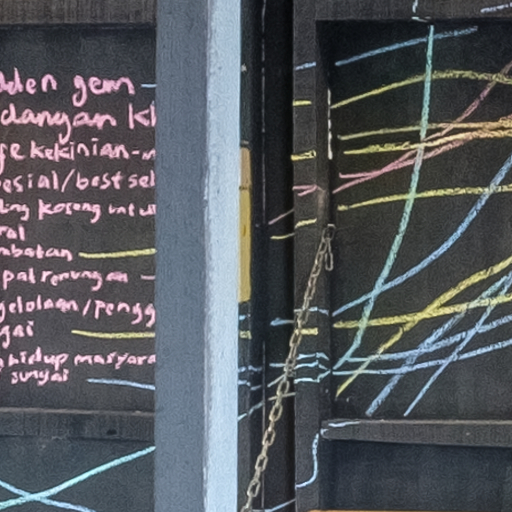 dden gem
dangan kh
ge kekinian-
esial/best sel
ng kosong untu
ral
mbatan
pal renungan
gelolaan/pengg
gai
hidup masyara
sungai